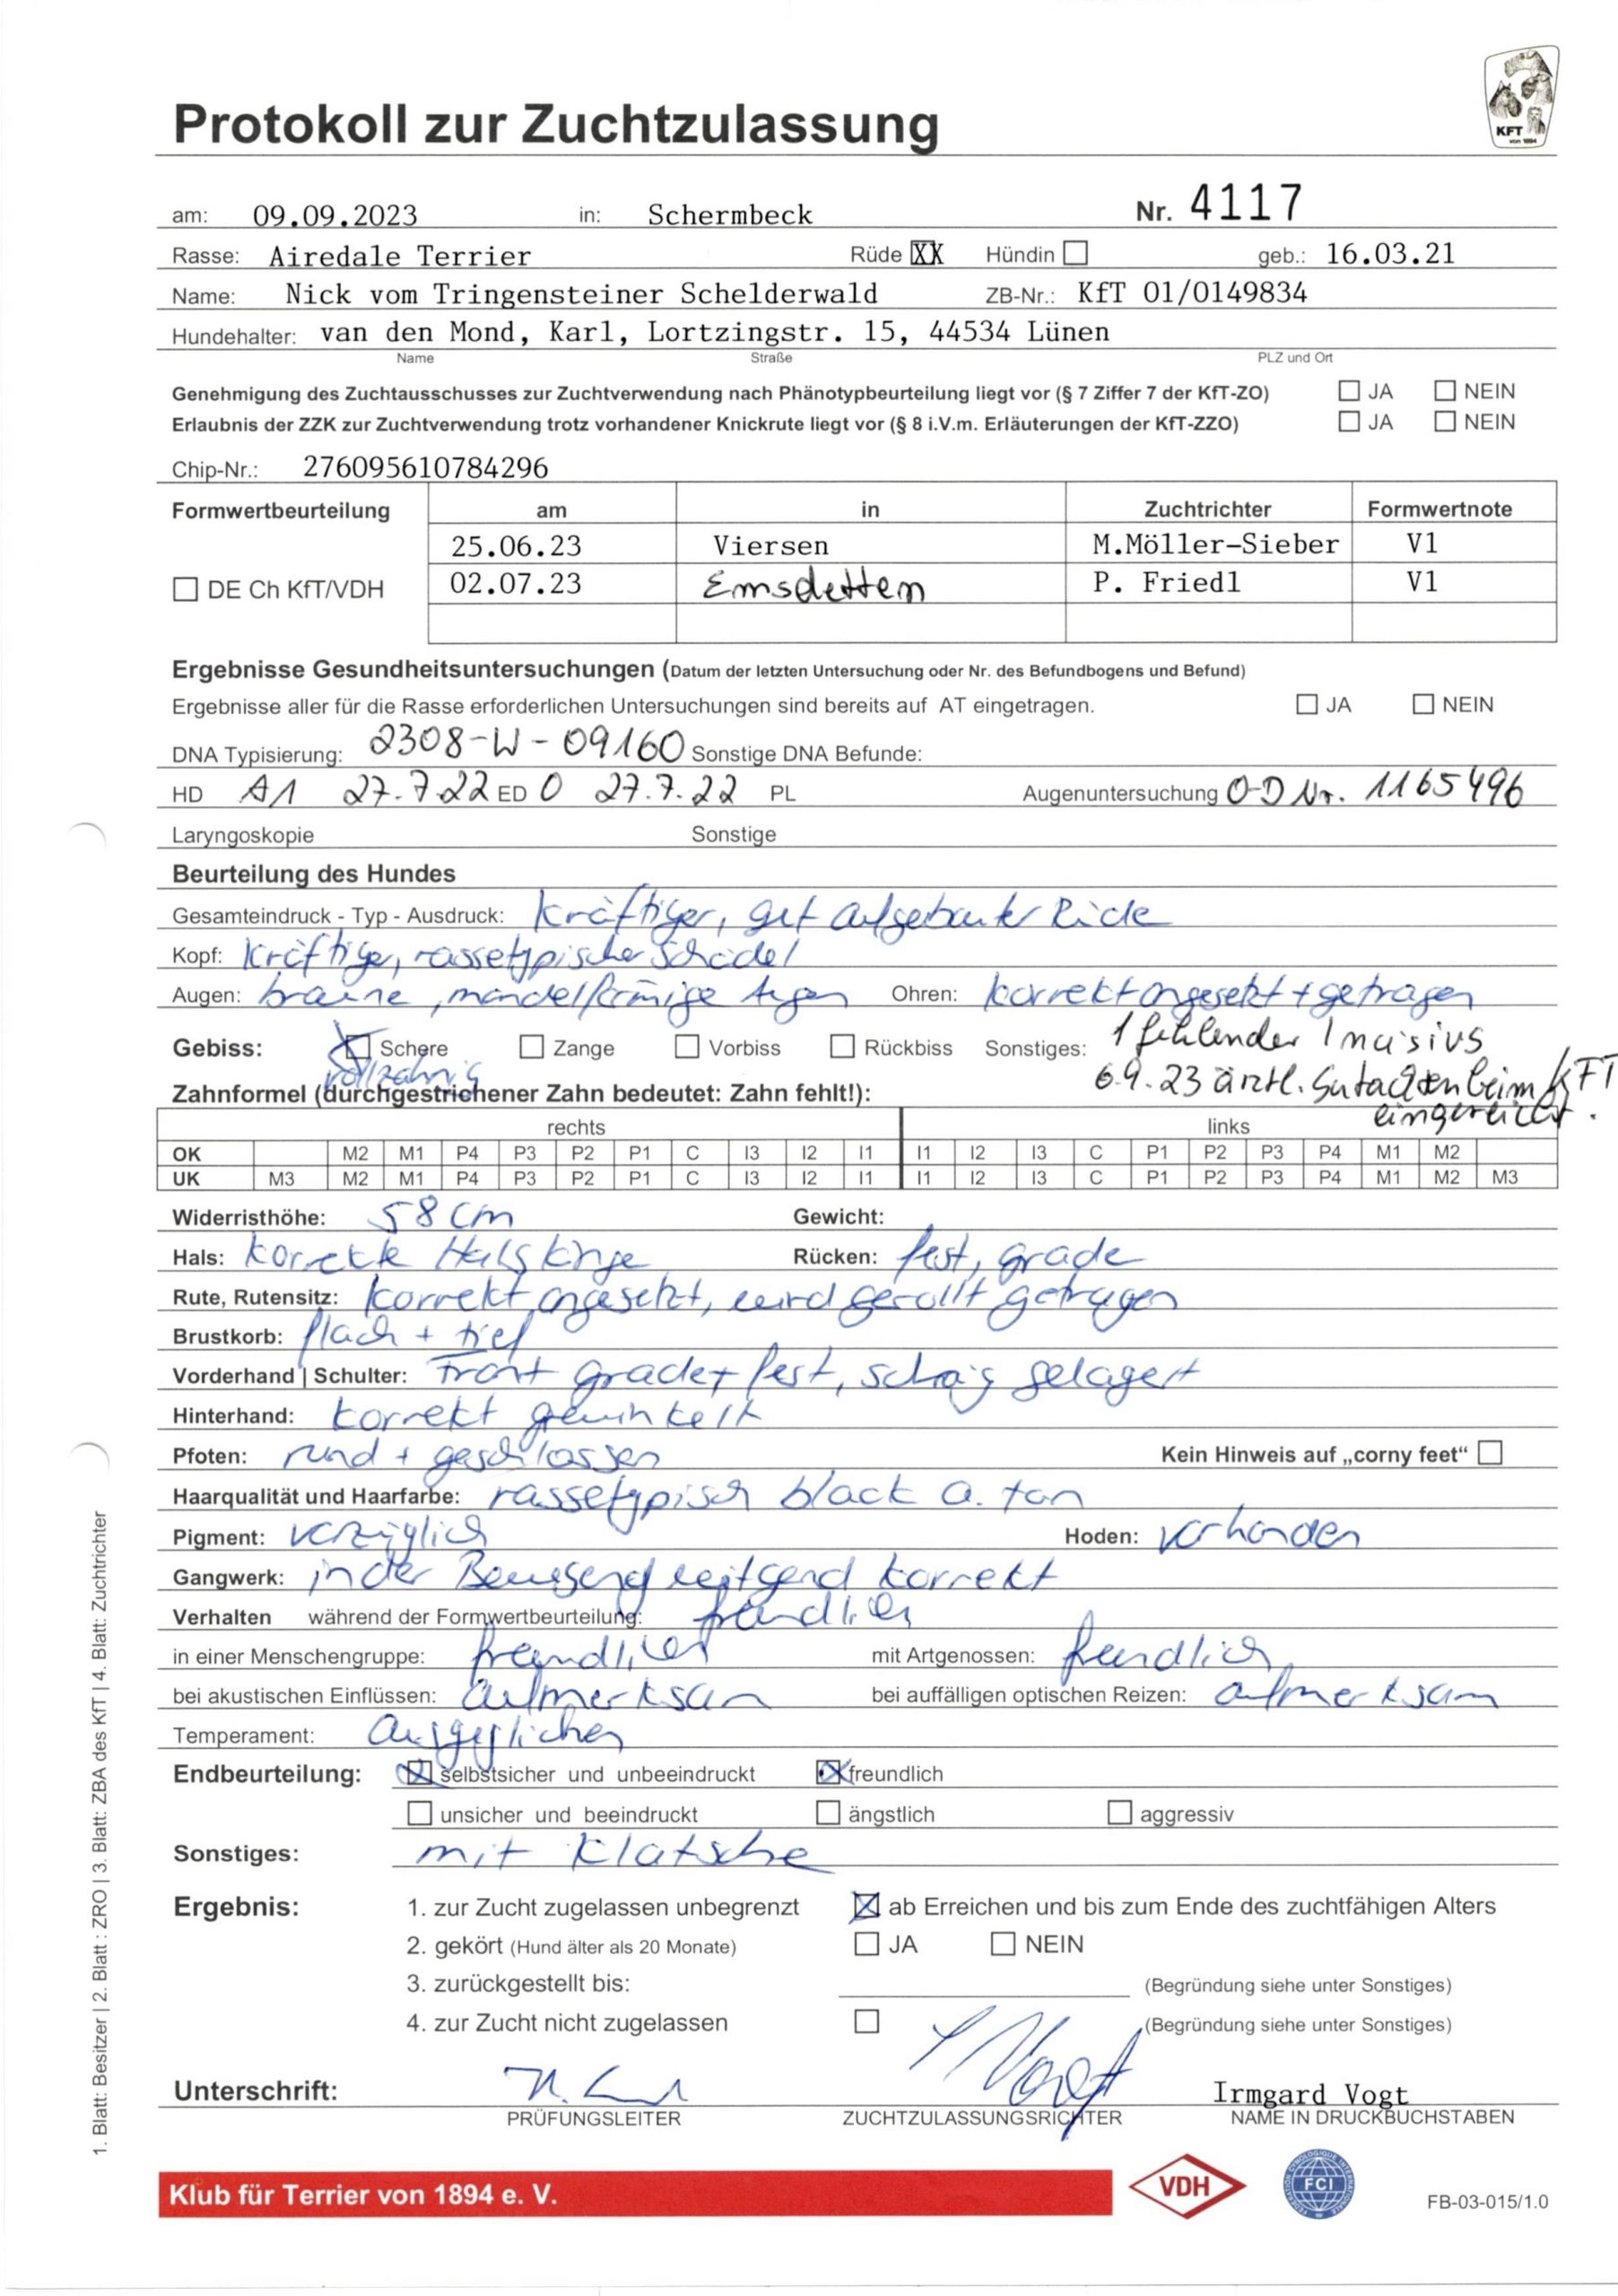 Protokoll zur Zuchtzulassung
KFT
von 1894
am: 09.09.2023 in: Schermbeck Nr. 4117
Rasse: Airedale Terrier Rüde XX Hündin ☐ geb.: 16.03.21
Name: Nick vom Tringensteiner Schelderwald ZB-Nr.: KfT 01/0149834
Hundehalter: van den Mond, Karl, Lortzingstr. 15, 44534 Lünen
Name Straße PLZ und Ort
Genehmigung des Zuchtausschusses zur Zuchtverwendung nach Phänotypbeurteilung liegt vor (§ 7 Ziffer 7 der KfT-ZO) ☐ JA ☐ NEIN
Erlaubnis der ZZK zur Zuchtverwendung trotz vorhandener Knickrute liegt vor (§ 8 i.V.m. Erläuterungen der KfT-ZZO) ☐ JA ☐ NEIN
Chip-Nr.: 276095610784296
Formwertbeurteilung am in Zuchtrichter Formwertnote
25.06.23 Viersen M.Möller-Sieber V1
☐ DE Ch KfT/VDH 02.07.23 Emsdetten P. Friedl V1
Ergebnisse Gesundheitsuntersuchungen (Datum der letzten Untersuchung oder Nr. des Befundbogens und Befund)
Ergebnisse aller für die Rasse erforderlichen Untersuchungen sind bereits auf AT eingetragen. ☐ JA ☐ NEIN
DNA Typisierung: 2308-W-09160 Sonstige DNA Befunde:
HD A1 27.7.22 ED 0 27.7.22 PL Augenuntersuchung O-D Nr. 1165496
Laryngoskopie Sonstige
Beurteilung des Hundes
Gesamteindruck - Typ - Ausdruck: kräftiger, gut aufgebauter Rüde
Kopf: kräftiger, rassetypischer Schädel
Augen: braune, mandelförmige Augen Ohren: korrekt angesetzt + getragen
Gebiss: ☒ Schere ☐ Zange ☐ Vorbiss ☐ Rückbiss Sonstiges: 1 fehlender Incisivus
vollzahnig 6.9.23 ärztl. Gutachten beim KFT
Zahnformel (durchgestrichener Zahn bedeutet: Zahn fehlt!): eingereicht.
rechts links
OK M2 M1 P4 P3 P2 P1 C I3 I2 I1 I1 I2 I3 C P1 P2 P3 P4 M1 M2
UK M3 M2 M1 P4 P3 P2 P1 C I3 I2 I1 I1 I2 I3 C P1 P2 P3 P4 M1 M2 M3
Widerristhöhe: 58 cm Gewicht:
Hals: korrekte Halslänge Rücken: fest, grade
Rute, Rutensitz: korrekt angesetzt, wird gerollt getragen
Brustkorb: flach + tief
Vorderhand | Schulter: Front grade + fest, schräg gelagert
Hinterhand: korrekt gewinkelt
Pfoten: rund + geschlossen Kein Hinweis auf „corny feet“ ☐
Haarqualität und Haarfarbe: rassetypisch black a. tan
Pigment: vorzüglich Hoden: vorhanden
Gangwerk: in der Bewegung weitgend korrekt
Verhalten während der Formwertbeurteilung: freundlich
in einer Menschengruppe: freundlich mit Artgenossen: freundlich
bei akustischen Einflüssen: aufmerksam bei auffälligen optischen Reizen: aufmerksam
Temperament: ausgeglichen
Endbeurteilung: ☒ selbstsicher und unbeeindruckt ☒ freundlich
☐ unsicher und beeindruckt ☐ ängstlich ☐ aggressiv
Sonstiges: mit Klatsche
Ergebnis: 1. zur Zucht zugelassen unbegrenzt ☒ ab Erreichen und bis zum Ende des zuchtfähigen Alters
2. gekört (Hund älter als 20 Monate) ☐ JA ☐ NEIN
3. zurückgestellt bis: (Begründung siehe unter Sonstiges)
4. zur Zucht nicht zugelassen ☐ (Begründung siehe unter Sonstiges)
Unterschrift: I Vogt Irmgard Vogt
PRÜFUNGSLEITER ZUCHTZULASSUNGSRICHTER NAME IN DRUCKBUCHSTABEN
Klub für Terrier von 1894 e. V. VDH FCI FB-03-015/1.0
1. Blatt: Besitzer | 2. Blatt : ZRO | 3. Blatt: ZBA des KfT | 4. Blatt: Zuchtrichter